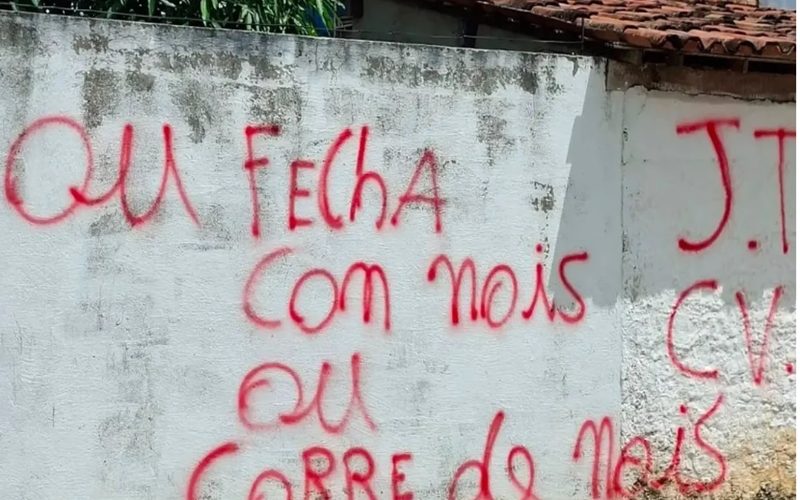 OU FEChA
COM NOIS
OU
CORRE de NOIS
J.T
CV.